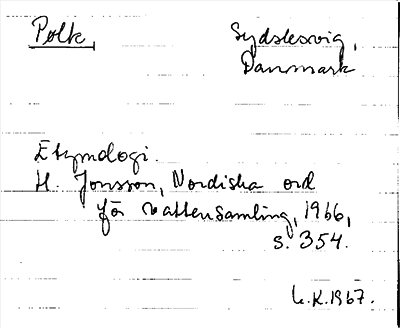 Polk, Sydslesvig,
Danmark
Etymologi.
H. Jonsson, Nordiska ord
för vattensamling, 1966,
s. 354.
L.K.1967.